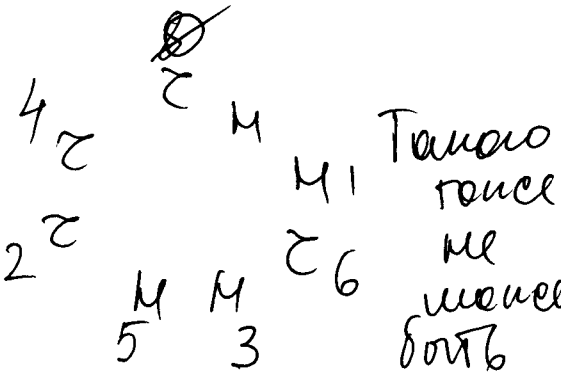 ч
4 ч м
м 1
2 ч ч 6
м м
5 3
Такого
тоже
не
може
быть